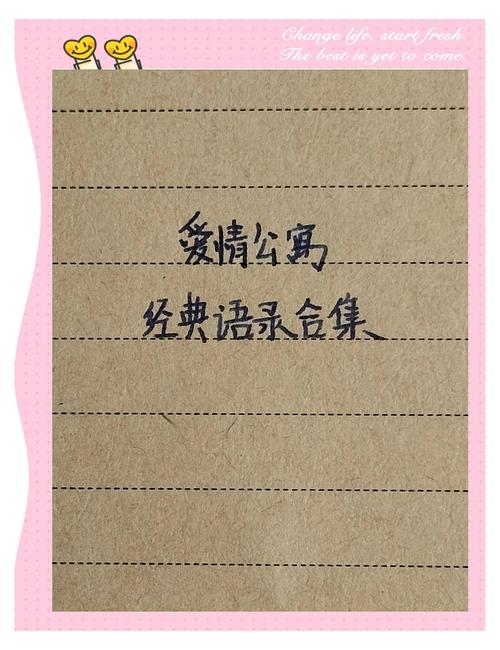 Change life, start fresh.
The best is yet to come.
爱情公寓
经典语录合集